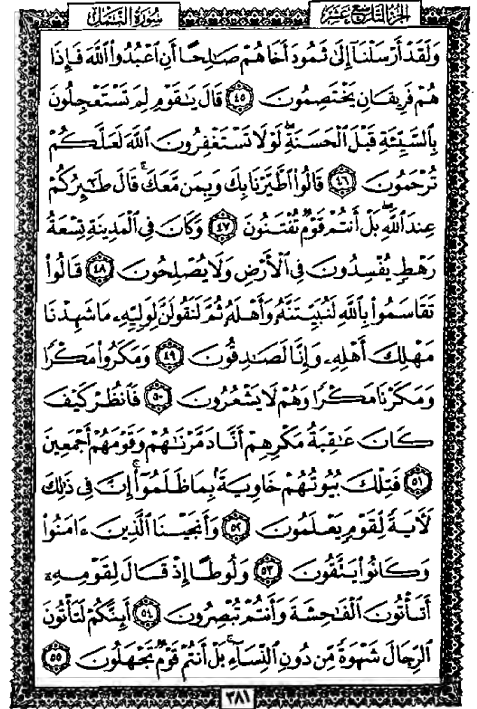 الجزء التاسع عشر سورة النمل
وَلَقَدْ أَرْسَلْنَآ إِلَىٰ ثَمُودَ أَخَاهُمْ صَٰلِحًا أَنِ ٱعْبُدُوا۟ ٱللَّهَ فَإِذَا
هُمْ فَرِيقَانِ يَخْتَصِمُونَ ٤٥ قَالَ يَٰقَوْمِ لِمَ تَسْتَعْجِلُونَ
بِٱلسَّيِّئَةِ قَبْلَ ٱلْحَسَنَةِ ۖ لَوْلَا تَسْتَغْفِرُونَ ٱللَّهَ لَعَلَّكُمْ
تُرْحَمُونَ ٤٦ قَالُوا۟ ٱطَّيَّرْنَا بِكَ وَبِمَن مَّعَكَ ۚ قَالَ طَٰٓئِرُكُمْ
عِندَ ٱللَّهِ ۖ بَلْ أَنتُمْ قَوْمٌ تُفْتَنُونَ ٤٧ وَكَانَ فِى ٱلْمَدِينَةِ تِسْعَةُ
رَهْطٍ يُفْسِدُونَ فِى ٱلْأَرْضِ وَلَا يُصْلِحُونَ ٤٨ قَالُوا۟
تَقَاسَمُوا۟ بِٱللَّهِ لَنُبَيِّتَنَّهُۥ وَأَهْلَهُۥ ثُمَّ لَنَقُولَنَّ لِوَلِيِّهِۦ مَا شَهِدْنَا
مَهْلِكَ أَهْلِهِۦ وَإِنَّا لَصَٰدِقُونَ ٤٩ وَمَكَرُوا۟ مَكْرًا
وَمَكَرْنَا مَكْرًا وَهُمْ لَا يَشْعُرُونَ ٥٠ فَٱنظُرْ كَيْفَ
كَانَ عَٰقِبَةُ مَكْرِهِمْ أَنَّا دَمَّرْنَٰهُمْ وَقَوْمَهُمْ أَجْمَعِينَ
٥١ فَتِلْكَ بُيُوتُهُمْ خَاوِيَةًۢ بِمَا ظَلَمُوٓا۟ ۗ إِنَّ فِى ذَٰلِكَ
لَءَايَةً لِّقَوْمٍ يَعْلَمُونَ ٥٢ وَأَنجَيْنَا ٱلَّذِينَ ءَامَنُوا۟
وَكَانُوا۟ يَتَّقُونَ ٥٣ وَلُوطًا إِذْ قَالَ لِقَوْمِهِۦٓ
أَتَأْتُونَ ٱلْفَٰحِشَةَ وَأَنتُمْ تُبْصِرُونَ ٥٤ أَئِنَّكُمْ لَتَأْتُونَ
ٱلرِّجَالَ شَهْوَةً مِّن دُونِ ٱلنِّسَآءِ ۚ بَلْ أَنتُمْ قَوْمٌ تَجْهَلُونَ ٥٥
٣٨١